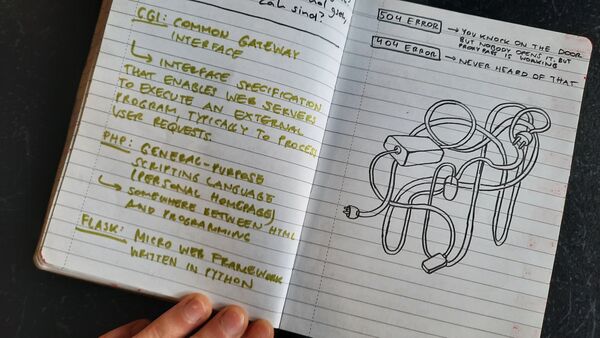 zabs sind?
CGI: COMMON GATEWAY
INTERFACE
↳ INTERFACE SPECIFICATION
THAT ENABLES WEB SERVERS
TO EXECUTE AN EXTERNAL
PROGRAM, TYPICALLY TO PROCESS
USER REQUESTS
PHP: GENERAL-PURPOSE
SCRIPTING LANGUAGE
(PERSONAL HOMEPAGE)
↳ SOMEWHERE BETWEEN HTML
AND PROGRAMMING
FLASK: MICRO WEB FRAMEWORK
WRITTEN IN PYTHON
504 ERROR → YOU KNOCK ON THE DOOR
BUT NOBODY OPENS IT, BUT
PROXY PASS IS WORKING
404 ERROR → NEVER HEARD OF THAT